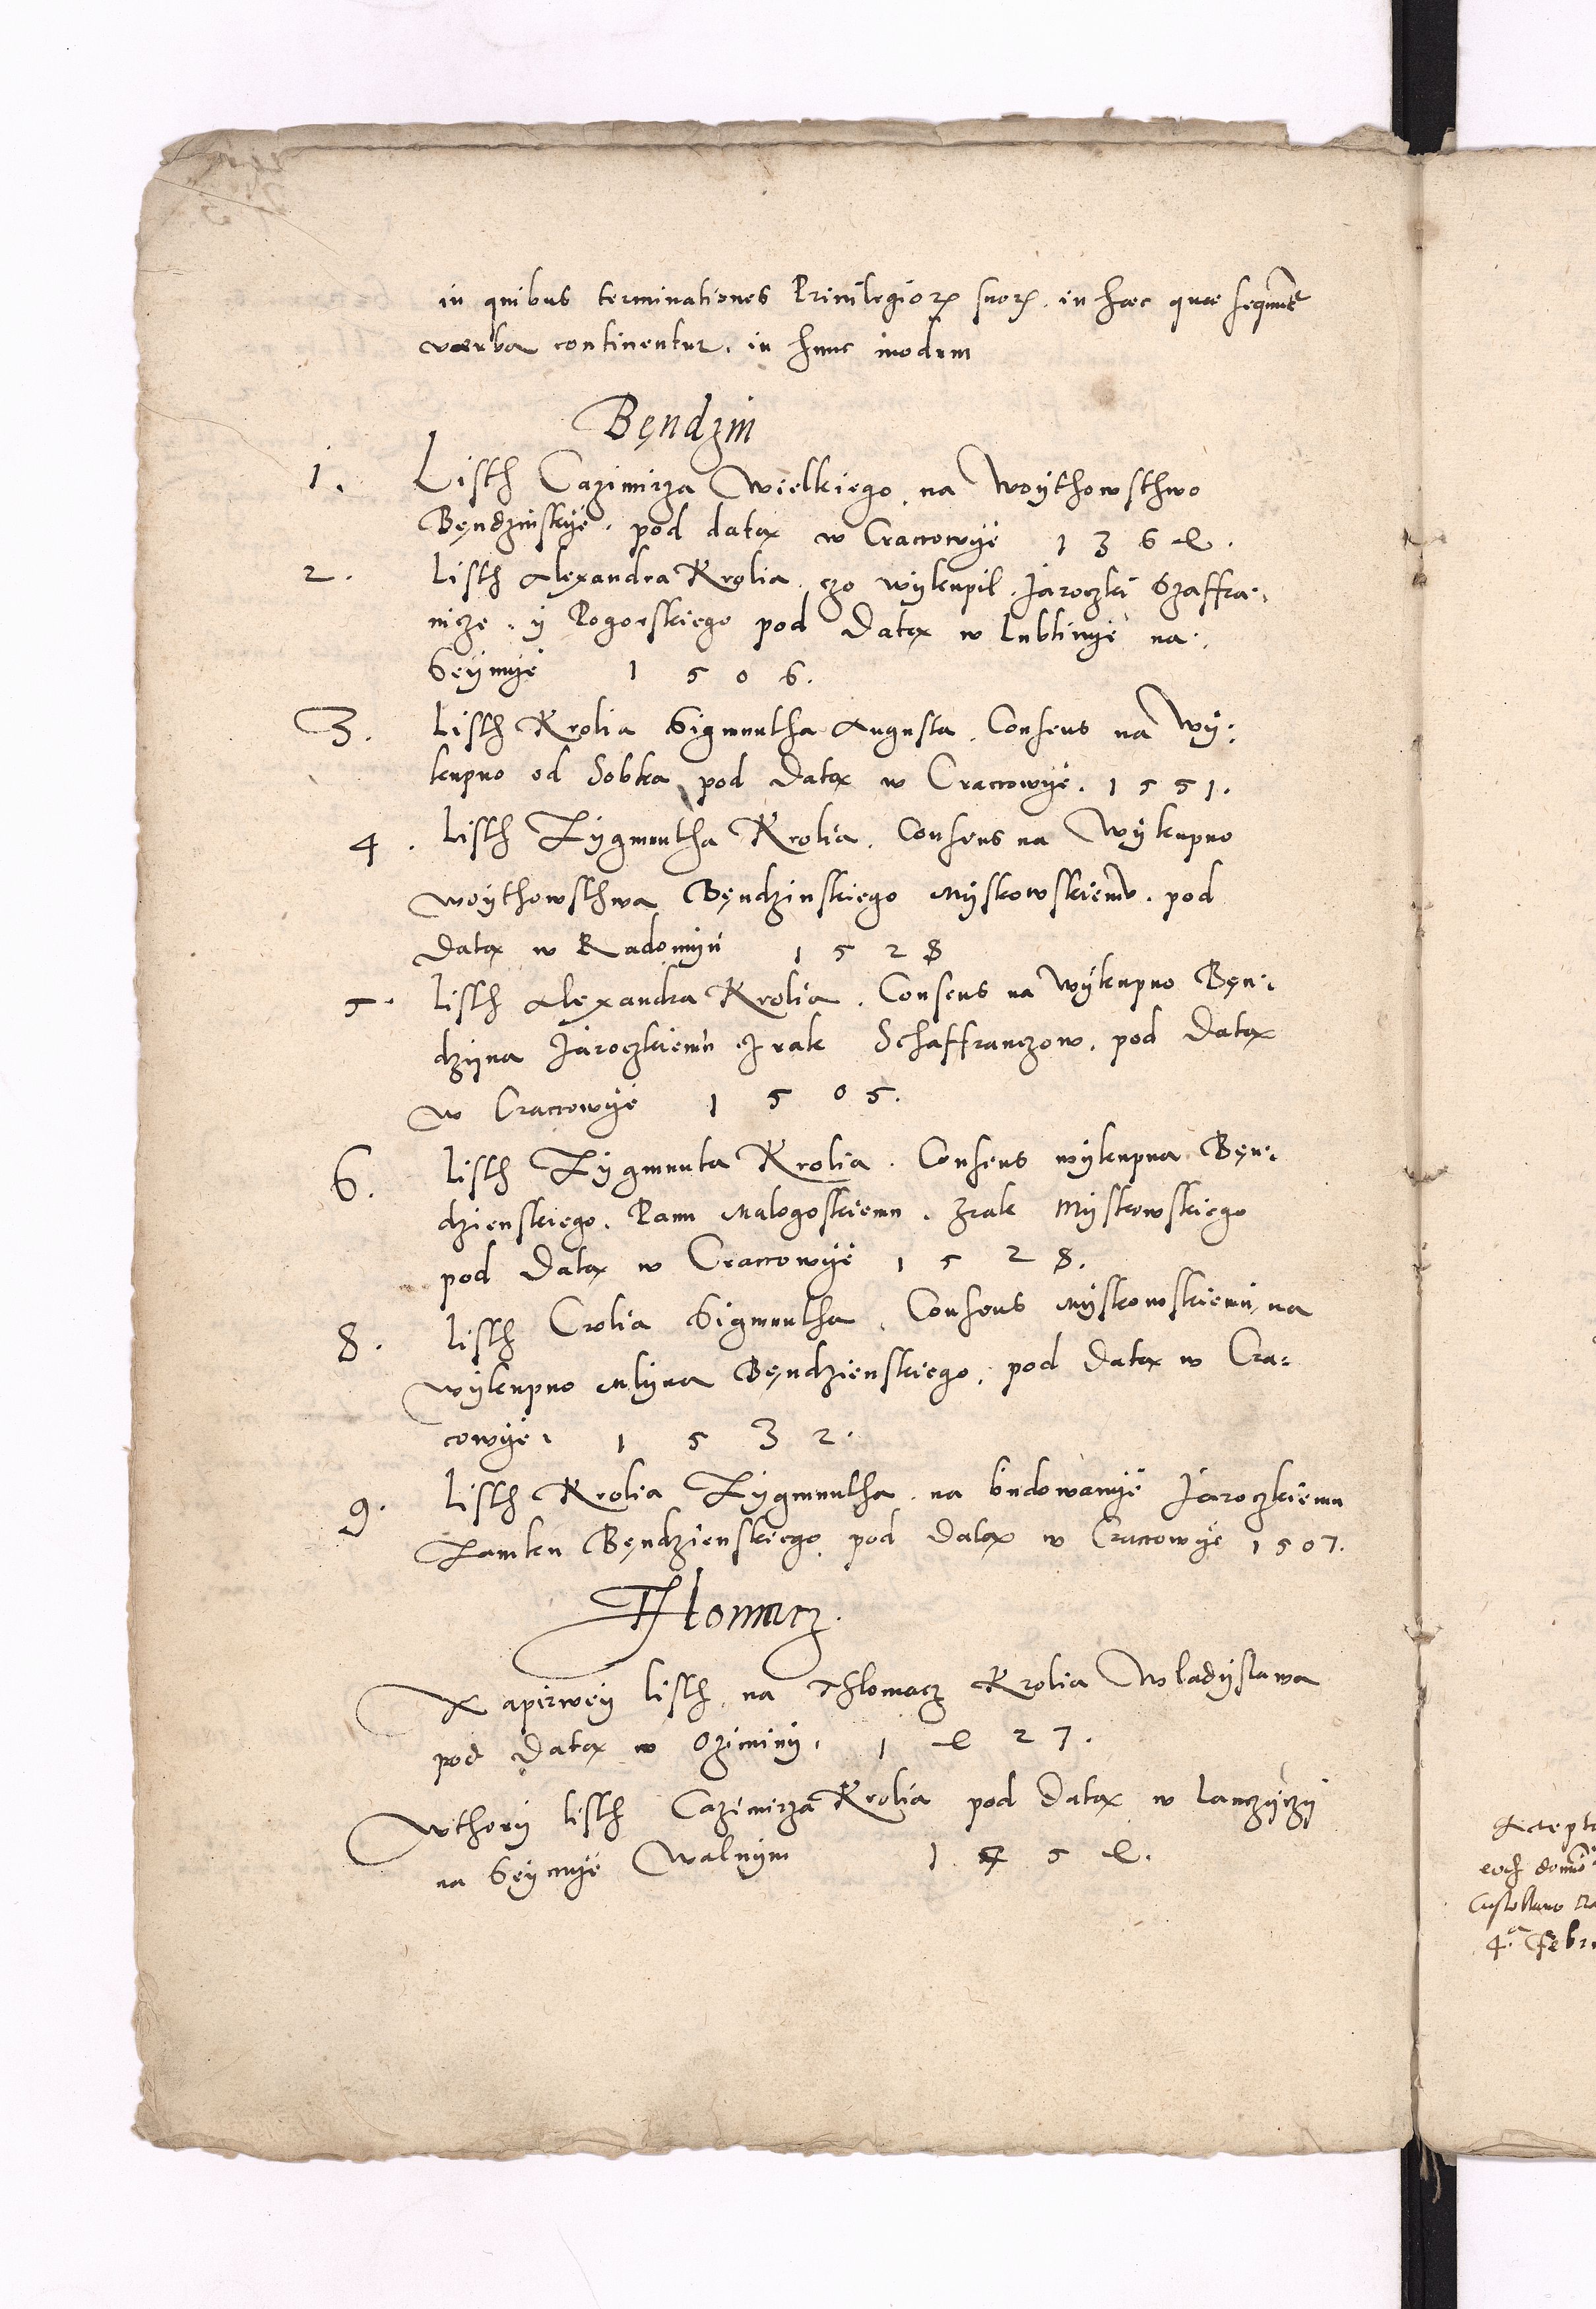 in quibus terminationes Privilegiorꝝ suorꝝ. in hæc quæ sequunt̃
værba continentur. in hunc modum
Bęndzin
1. Listh Cazimirza Wielkiego na Woÿthowsthwo
Bęndzinskÿe. pod datą w Craccowÿe 1364.
2. Listh Alexandra Krolia. czo wÿkupil. Jaroczki Szaffra-
nicze. ÿ Pogorskiego pod Datą w Lublinÿe na.
Seÿmÿe 1506.
3. Listh Krolia Sigmuntha Augusta. Consens na Wÿ-
kupno od Sobka pod Datą w Craccowÿe. 1551.
4. Listh Zÿgmuntha Krolia. Consens na Wÿkupno
Woÿthowsthwa Bęndzinskiego Mÿskowskiemu. pod
Datą w Radomiÿu 1528
5. Listh Alexandra Krolia. Consens na Wÿkupno Bęn-
dzÿna Jaroczkiemu Zrak Schaffranczow. pod Datą
w Craccowÿe 1505.
6. Listh Zÿgmunta Krolia. Consens wÿkupna Bęn-
dzienskiego. Panu Malogoskiemu. Zrak Mÿskowskiego
pod Datą w Craccowÿe 1528.
8. Listh Crolia Sigmuntha. Consens Mÿskowskiemu na
wÿkupno Mlÿna Bęndzienskiego. pod Datą w Cra-
cowÿe. 1532.
9. Listh Krolia Zÿgmuntha. na budowanÿe Jaroczkiemu
Zamku Bęndzienskiego pod Datą w Craccowÿe 1507.
Thlomacz.
Napirweÿ listh na Thlomacz Krolia Wladÿslawa
pod Datą w Oziminÿ. 1427.
Wthorÿ listh Cazimirza Krolia pod Datą w Lanczÿczÿ
na Seÿmÿe Walnÿm 1454.
4.ᵃ Febr